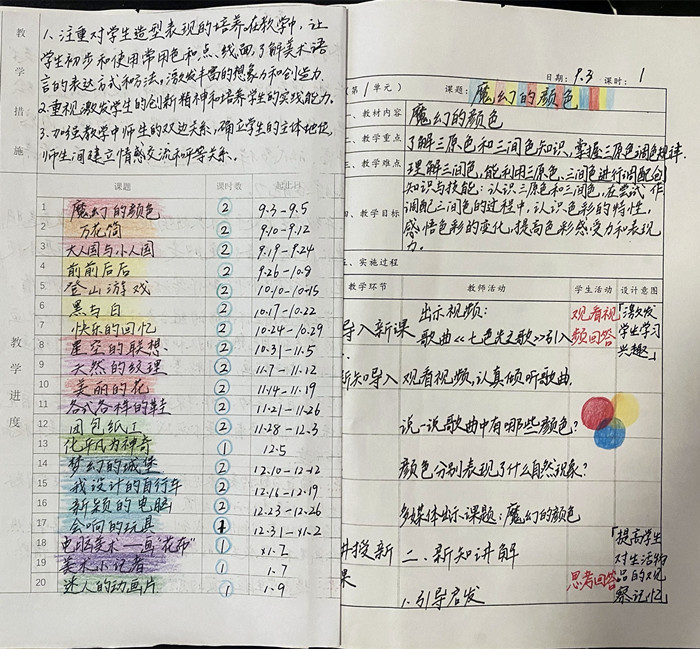 教学措施
1、注重对学生造型表现的培养。在教学中，让
学生初步和使用常用色和点、线面，了解美术语
言的表达方式和方法，激发丰富的想象力和创造力.
2.重视激发学生的创新精神和培养学生的实践能力.
3.加强教学中师生的双边关系，确立学生的主体地位，
师生间建立情感交流和平等关系.
教学进度
课题 课时数 起止日
1 魔幻的颜色 2 9.3-9.5
2 万花筒 2 9.10-9.12
3 大人国与小人国 2 9.19-9.24
4 前前后后 2 9.26-10.9
5 登山游戏 2 10.10-10.15
6 黑与白 2 10.17-10.22
7 快乐的回忆 2 10.24-10.29
8 星空的联想 2 10.31-11.5
9 天然的纹理 2 11.7-11.12
10 美丽的花 2 11.14-11.19
11 各式各样的鞋 2 11.21-11.26
12 面包纸工 2 11.28-12.3
13 化平凡为神奇 1 12.5
14 梦幻的城堡 2 12.10-12.12
15 我设计的自行车 2 12.16-12.19
16 新颖的电脑 2 12.23-12.26
17 会响的玩具 12.31-
18 电脑美术——画"花布" 1
19 美术小记者 1 1.7
20 迷人的动画片 1 1.9
日期： 9.3 课时： 1
（第1单元） 课题：魔幻的颜色
一、教材内容 魔幻的颜色
二、教学重点 了解三原色和三间色知识，掌握三原色调色规律.
三、教学难点 理解三间色，能利用三原色、三间色进行调配
四、教学目标 知识与技能：认识三原色和三间色，在尝试
调配三间色的过程中，认识色彩的特性，
感悟色彩的变化，提高色彩感受力和表现
力.
五、实施过程
教学环节 教师活动 学生活动 设计意图
导入新课 出示视频：
歌曲《七色光之歌》引入
观看视
频回答
「激发
学生学习
兴趣」
新知导入 观看视频，认真倾听歌曲.
说一说歌曲中有哪些颜色？
颜色分别表现了什么自然现象？
多媒体出示课题：魔幻的颜色
讲授新课 二、新知讲解
1.引导启发
思考回答
「提高学生
对生活物
品的观
察记忆」